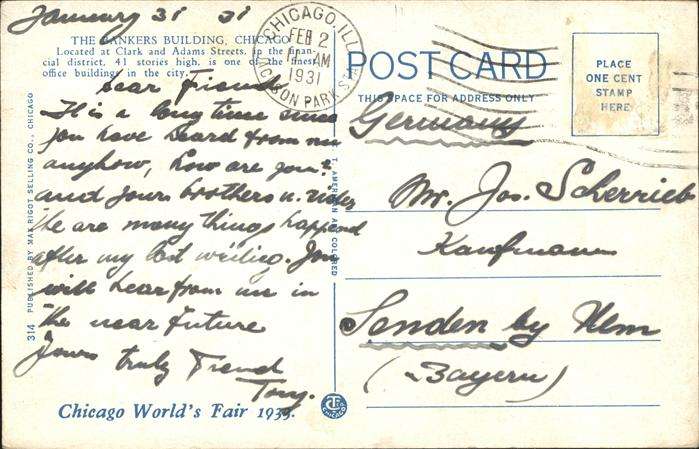 January 31 31
THE BANKERS BUILDING, CHICAGO
Located at Clark and Adams Streets, in the finan-
cial district, 41 stories high, is one of the finest
office buildings in the city.
Dear Friend
It is a long time since
you have heard from me
anyhow, how are you?
and yours brothers u.
he are many things happend
after my last
You
will hear from me in
the near future
Yours truly Friend
Tony.
Chicago World's Fair 1933.
314 PUBLISHED BY MAX RIGOT SELLING CO., CHICAGO
C. T. AMERICAN ART COLORED
CHICAGO, ILL.
FEB 2
AM
1931
JACKSON PARK STA.
POST CARD
THIS SPACE FOR ADDRESS ONLY
PLACE
ONE CENT
STAMP
HERE
Germany
Mr. Jos. Scherrieb
Kaufmann
Senden by Ulm
(Bayern)